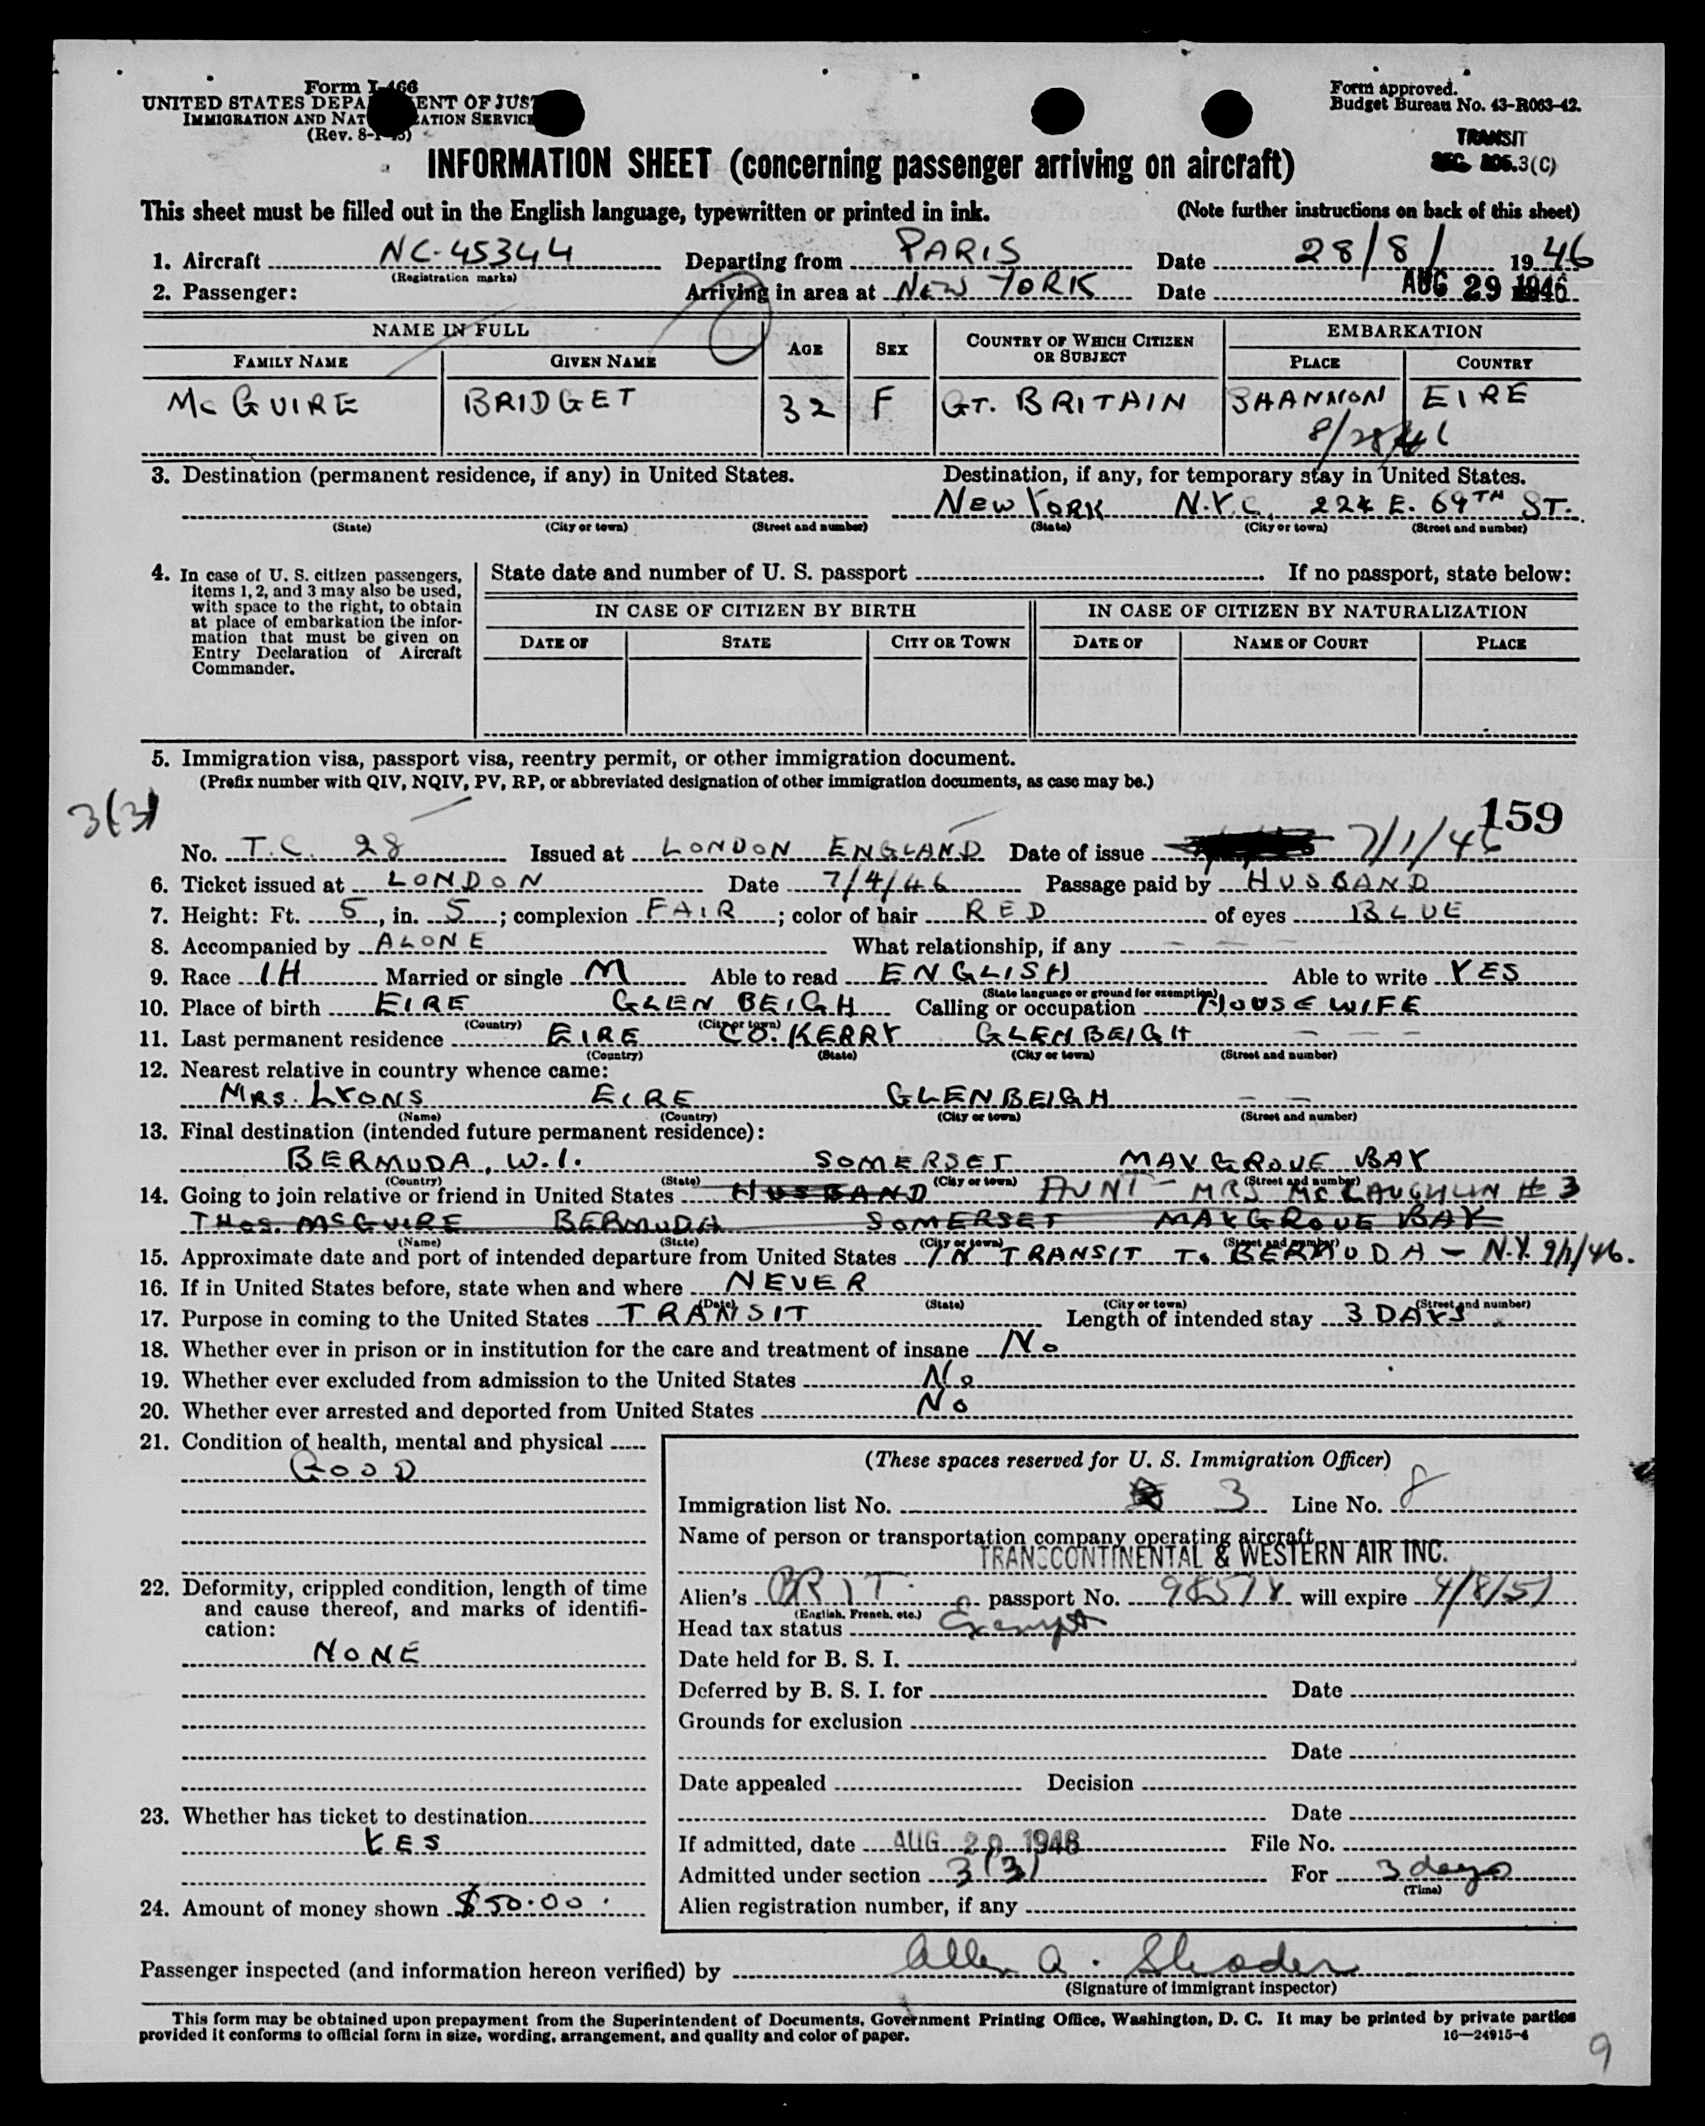 Form I-466
UNITED STATES DEPARTMENT OF JUSTICE
IMMIGRATION AND NATURALIZATION SERVICE
(Rev. 8-1-45)
Form approved.
Budget Bureau No. 43-R063-42.
TRANSIT
3(C)
INFORMATION SHEET (concerning passenger arriving on aircraft)
This sheet must be filled out in the English language, typewritten or printed in ink. (Note further instructions on back of this sheet)
1. Aircraft NC-45344 Departing from PARIS Date 28/8/ 1946
(Registration marks)
2. Passenger: Arriving in area at NEW YORK Date AUG 29 1946
NAME IN FULL AGE SEX COUNTRY OF WHICH CITIZEN OR SUBJECT EMBARKATION
FAMILY NAME GIVEN NAME PLACE COUNTRY
McGUIRE BRIDGET 32 F GT. BRITAIN SHANNON EIRE
8/28/46
3. Destination (permanent residence, if any) in United States. Destination, if any, for temporary stay in United States.
NEW YORK N.Y.C. 224 E. 69TH ST.
(State) (City or town) (Street and number) (State) (City or town) (Street and number)
4. In case of U. S. citizen passengers, items 1, 2, and 3 may also be used, with space to the right, to obtain at place of embarkation the information that must be given on Entry Declaration of Aircraft Commander.
State date and number of U. S. passport If no passport, state below:
IN CASE OF CITIZEN BY BIRTH IN CASE OF CITIZEN BY NATURALIZATION
DATE OF STATE CITY OR TOWN DATE OF NAME OF COURT PLACE
5. Immigration visa, passport visa, reentry permit, or other immigration document.
(Prefix number with QIV, NQIV, PV, RP, or abbreviated designation of other immigration documents, as case may be.)
3(3)
159
No. T.C. 28 Issued at LONDON ENGLAND Date of issue 7/1/46
6. Ticket issued at LONDON Date 7/4/46 Passage paid by HUSBAND
7. Height: Ft. 5, in. 5; complexion FAIR; color of hair RED of eyes BLUE
8. Accompanied by ALONE What relationship, if any - - -
9. Race IH Married or single M Able to read ENGLISH Able to write YES
(State language or ground for exemption)
10. Place of birth EIRE GLEN BEIGH Calling or occupation HOUSEWIFE
(Country) (City or town)
11. Last permanent residence EIRE CO. KERRY GLENBEIGH - - -
(Country) (State) (City or town) (Street and number)
12. Nearest relative in country whence came:
MRS. LYONS EIRE GLENBEIGH - -
(Name) (Country) (City or town) (Street and number)
13. Final destination (intended future permanent residence):
BERMUDA, W.I. SOMERSET MAXGROVE BAY
(Country) (State) (City or town) (Street and number)
14. Going to join relative or friend in United States HUSBAND AUNT - MRS McLAUGHLIN #3
THOS. McGUIRE BERMUDA SOMERSET MAXGROVE BAY
(Name) (State) (City or town) (Street and number)
15. Approximate date and port of intended departure from United States IN TRANSIT TO BERMUDA - N.Y. 9/1/46.
16. If in United States before, state when and where NEVER
(Date) (State) (City or town) (Street and number)
17. Purpose in coming to the United States TRANSIT Length of intended stay 3 DAYS
18. Whether ever in prison or in institution for the care and treatment of insane No
19. Whether ever excluded from admission to the United States No
20. Whether ever arrested and deported from United States No
21. Condition of health, mental and physical
GOOD
22. Deformity, crippled condition, length of time and cause thereof, and marks of identification:
NONE
23. Whether has ticket to destination
YES
24. Amount of money shown $50.00
(These spaces reserved for U. S. Immigration Officer)
Immigration list No. 3 Line No. 8
Name of person or transportation company operating aircraft
TRANSCONTINENTAL & WESTERN AIR INC.
Alien's BRIT. passport No. will expire 4/8/51
(English, French, etc.)
Head tax status Exempt
Date held for B. S. I.
Deferred by B. S. I. for Date
Grounds for exclusion
Date
Date appealed Decision
Date
If admitted, date AUG 29 1946 File No.
Admitted under section 3(3) For 3 days
(Time)
Alien registration number, if any
Passenger inspected (and information hereon verified) by Allen A.
(Signature of immigrant inspector)
This form may be obtained upon prepayment from the Superintendent of Documents, Government Printing Office, Washington, D. C. It may be printed by private parties
provided it conforms to official form in size, wording, arrangement, and quality and color of paper. 16—24915-4
9